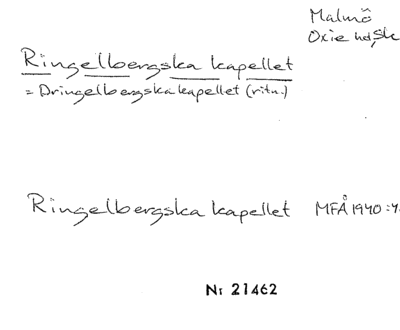 Malmö
Oxie hd, Sk
Ringelbergska kapellet
= Dringelbergska kapellet (ritn.)
Ringelbergska kapellet MFÅ 1940:
Nr 21462